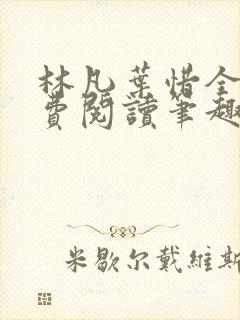 林凡葉惜全
費閱讀筆趣
米歇尔戴維斯